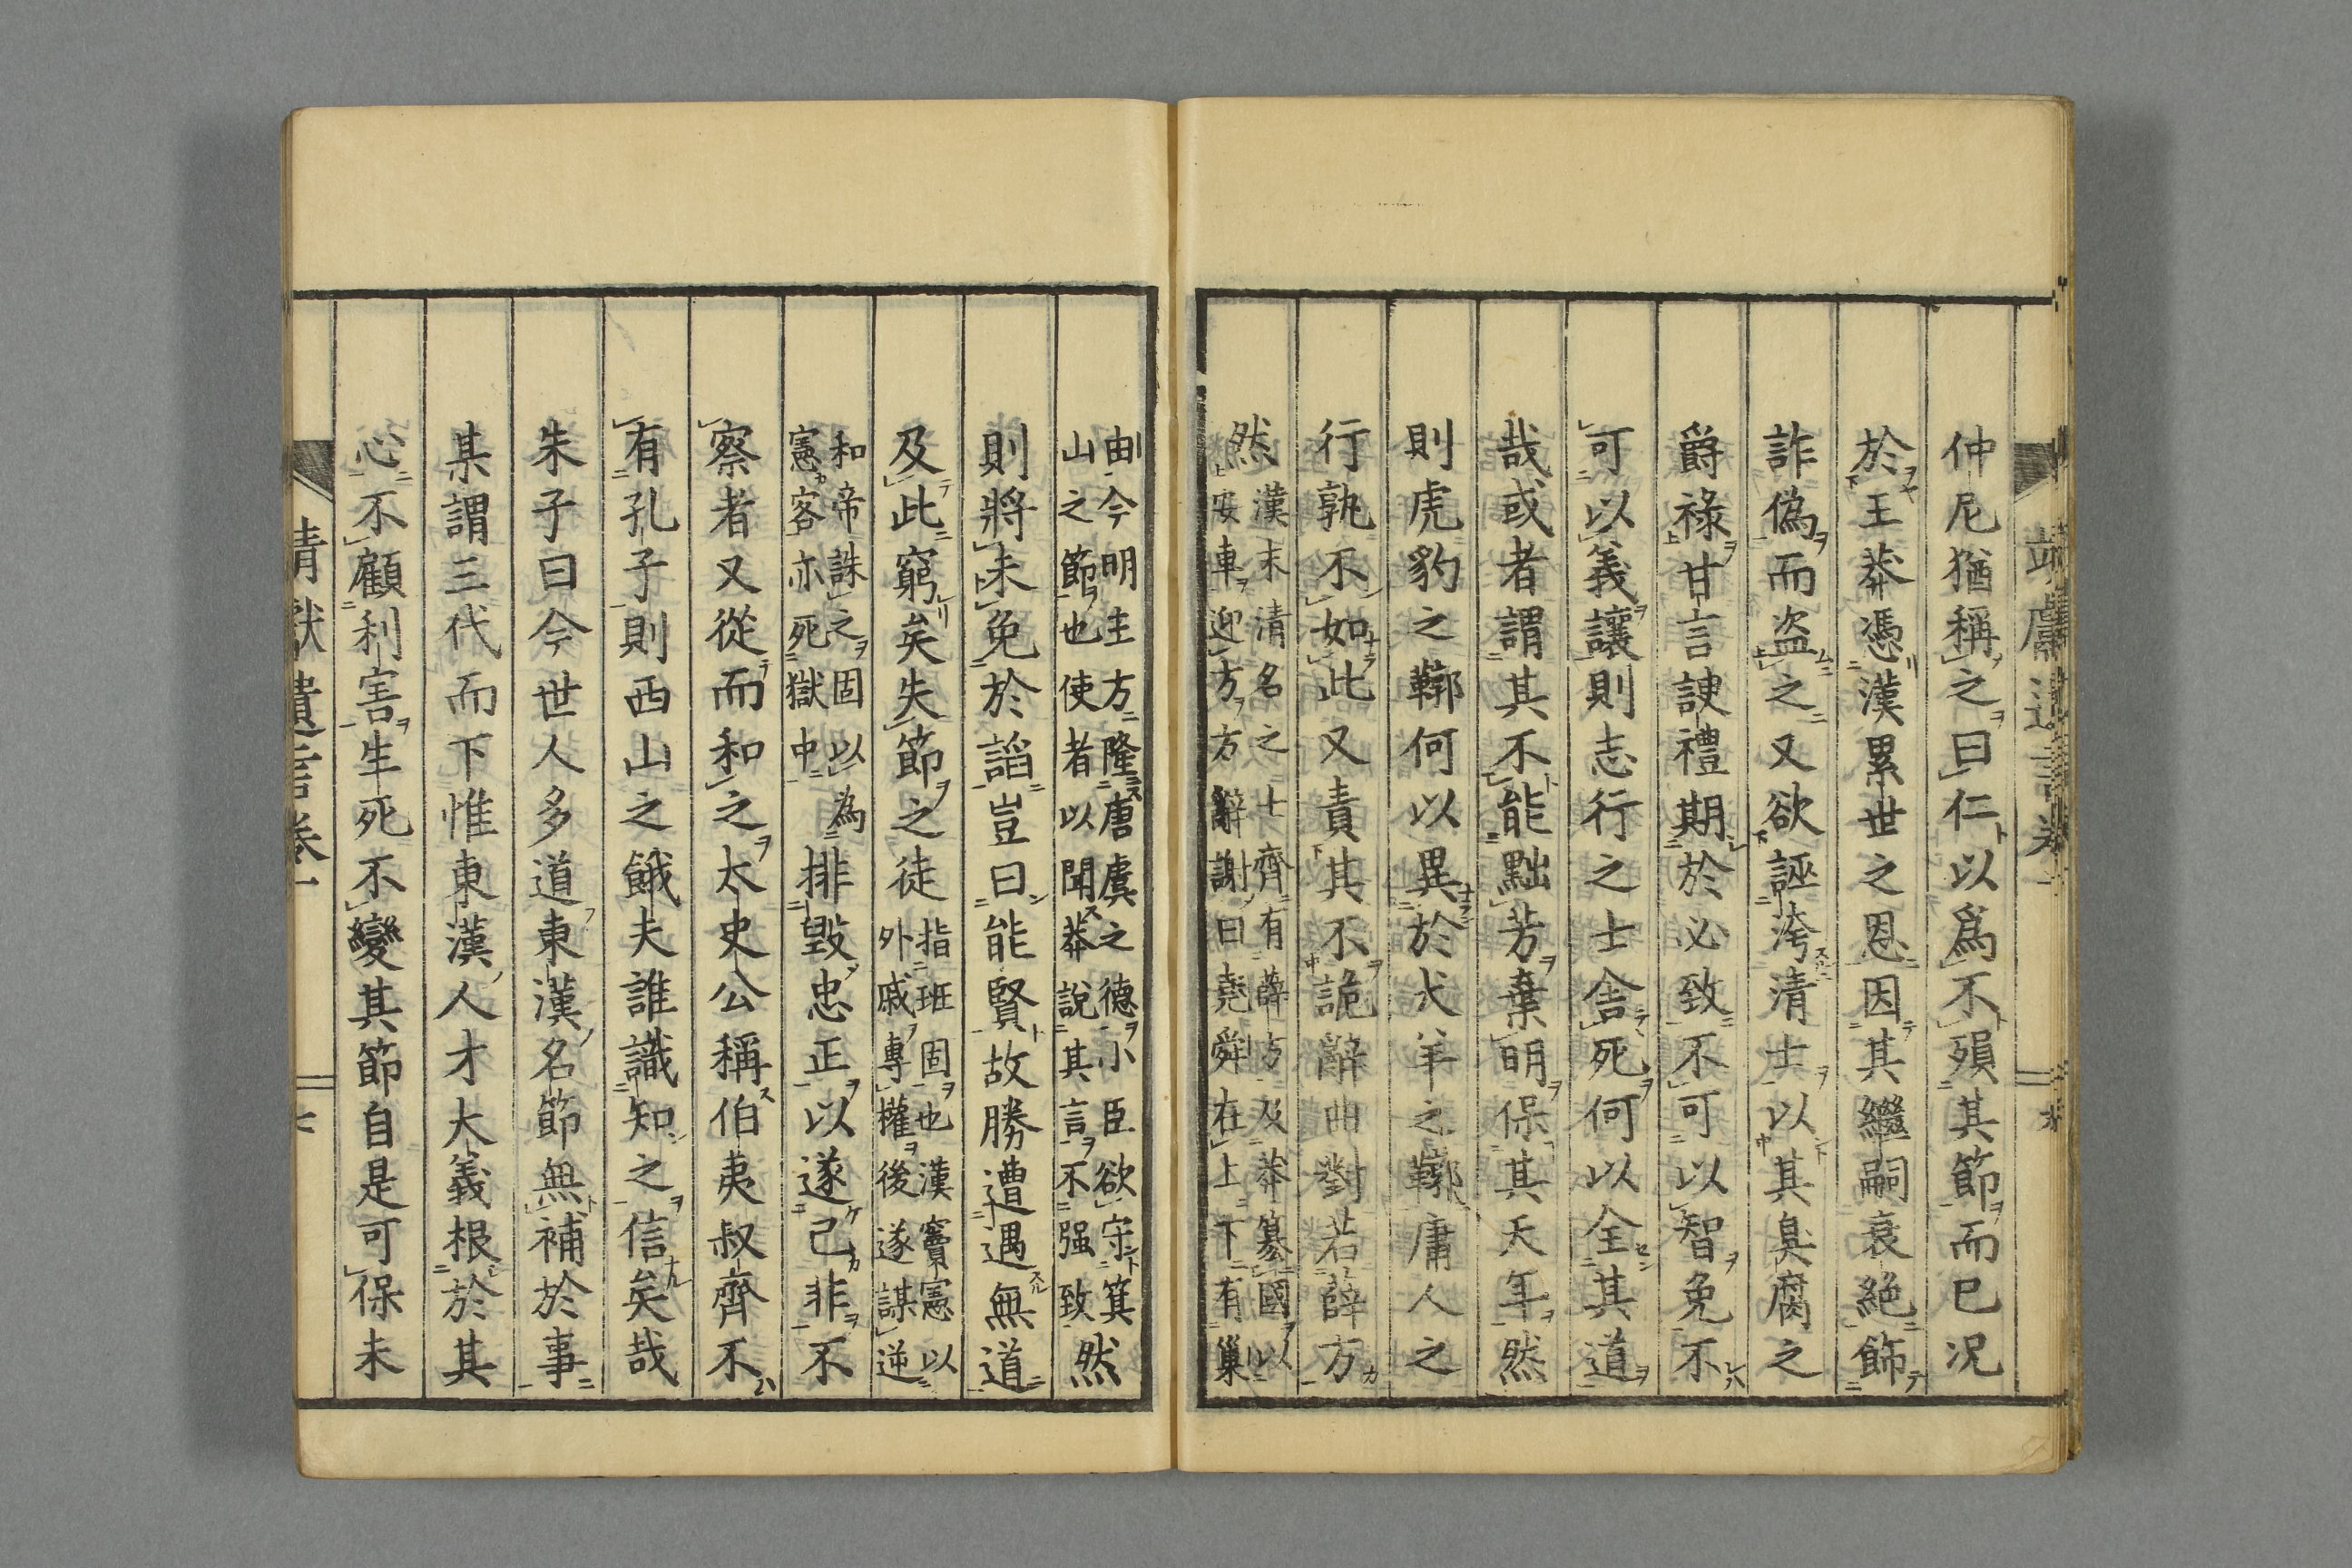 仲尼猶稱之曰仁以爲不殞其節而已况
於王莽憑漢累世之恩因其繼嗣衰絶飾
詐偽而盗之又欲誣洿清士以其臭腐之
爵祿甘言諛禮期於必致不可以智免不
可以義讓則志行之士舎死何以全其道
哉或者謂其不能黜芳棄明保其天年然
則虎豹之鞹何以異於犬羊之鞹庸人之
行孰不如此又責其不詭辭曲對若薛方
然
漢末清名之士齊有薛方及莽簒國以
安車迎方方辭謝曰堯舜在上下有巢
由今明主方隆唐虞之德小臣欲守箕
山之節也使者以聞莽說其言不强致
然
則將未免於諂豈曰能賢故勝遭遇無道
及此窮矣失節之徒
指班固也漢竇憲以
外戚專權後遂謀逆
和帝誅之固以為
憲客亦死獄中
排毀忠正以遂己非不
察者又從而和之太史公稱伯夷叔齊不
有孔子則西山之餓夫誰識知之信矣哉
朱子曰今世人多道東漢名節無補於事
某謂三代而下惟東漢人才大義根於其
心不顧利害生死不變其節自是可保未
靖獻遺言卷一
七